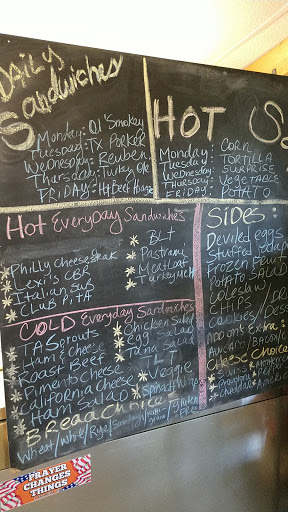 DAILY
Sandwiches
Monday: Ol' Smokey
Tuesday: TX Porker
Wednesday: Reuben
Thursday: Turkey
FRIDAY: Hot Beef
HOT
Monday: CORN
Tuesday: TORTILLA
Wednesday: SURPRISE
Thursday: VEGETABLE
FRIDAY: POTATO
Hot Everyday Sandwiches
Philly Cheesesteak
Lexi's CBR
Italian Sub
CLUB PITA
BLT
Pastrami
Meatloaf
Turkey Melt
COLD Everyday Sandwiches
TA Sprouts
Ham & Cheese
Roast Beef
Pimento Cheese
California Cheese
Ham Salad
Chicken Salad
Egg Salad
Tuna Salad
TLT
Veggie
Bread Choices
Wheat/White/Rye/
SIDES:
Deviled eggs
Stuffed
Frozen Fruit
POTATO SALAD
Coleslaw
CHIPS
COOKIES/
Add ons Extra:
Avocado/Bacon/
Cheese Choice
Swiss
PRAYER
CHANGES
THINGS